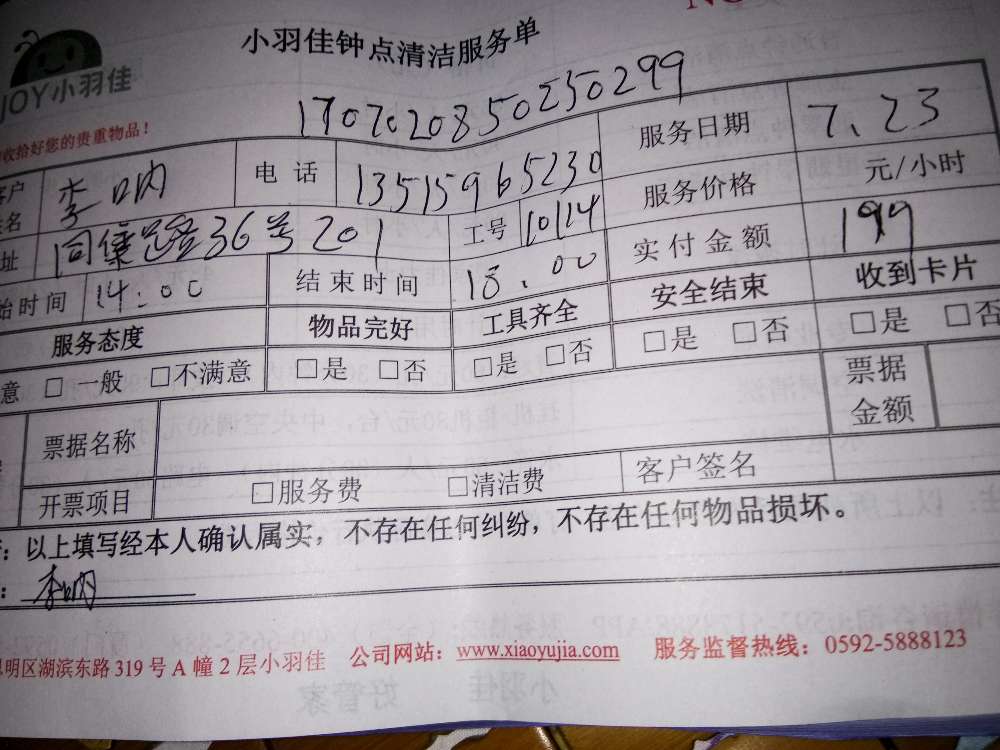 小羽佳钟点清洁服务单
JOY小羽佳
收拾好您的贵重物品！
170702085025​0299
客户 李 电话 13515965230 服务日期 7.23
签名 服务价格 元/小时
址 同集路36号201 工号 10114 实付金额 199
始时间 14:00 结束时间 18:00
服务态度 物品完好 工具齐全 安全结束 收到卡片
意 □一般 □不满意 □是 □否 □是 □否 □是 □否 □是 □否
票据名称 票据金额
开票项目 □服务费 □清洁费 客户签名
：以上填写经本人确认属实，不存在任何纠纷，不存在任何物品损坏。
：李
明区湖滨东路319号A幢2层小羽佳 公司网站：www.xiaoyujia.com 服务监督热线：0592-5888123